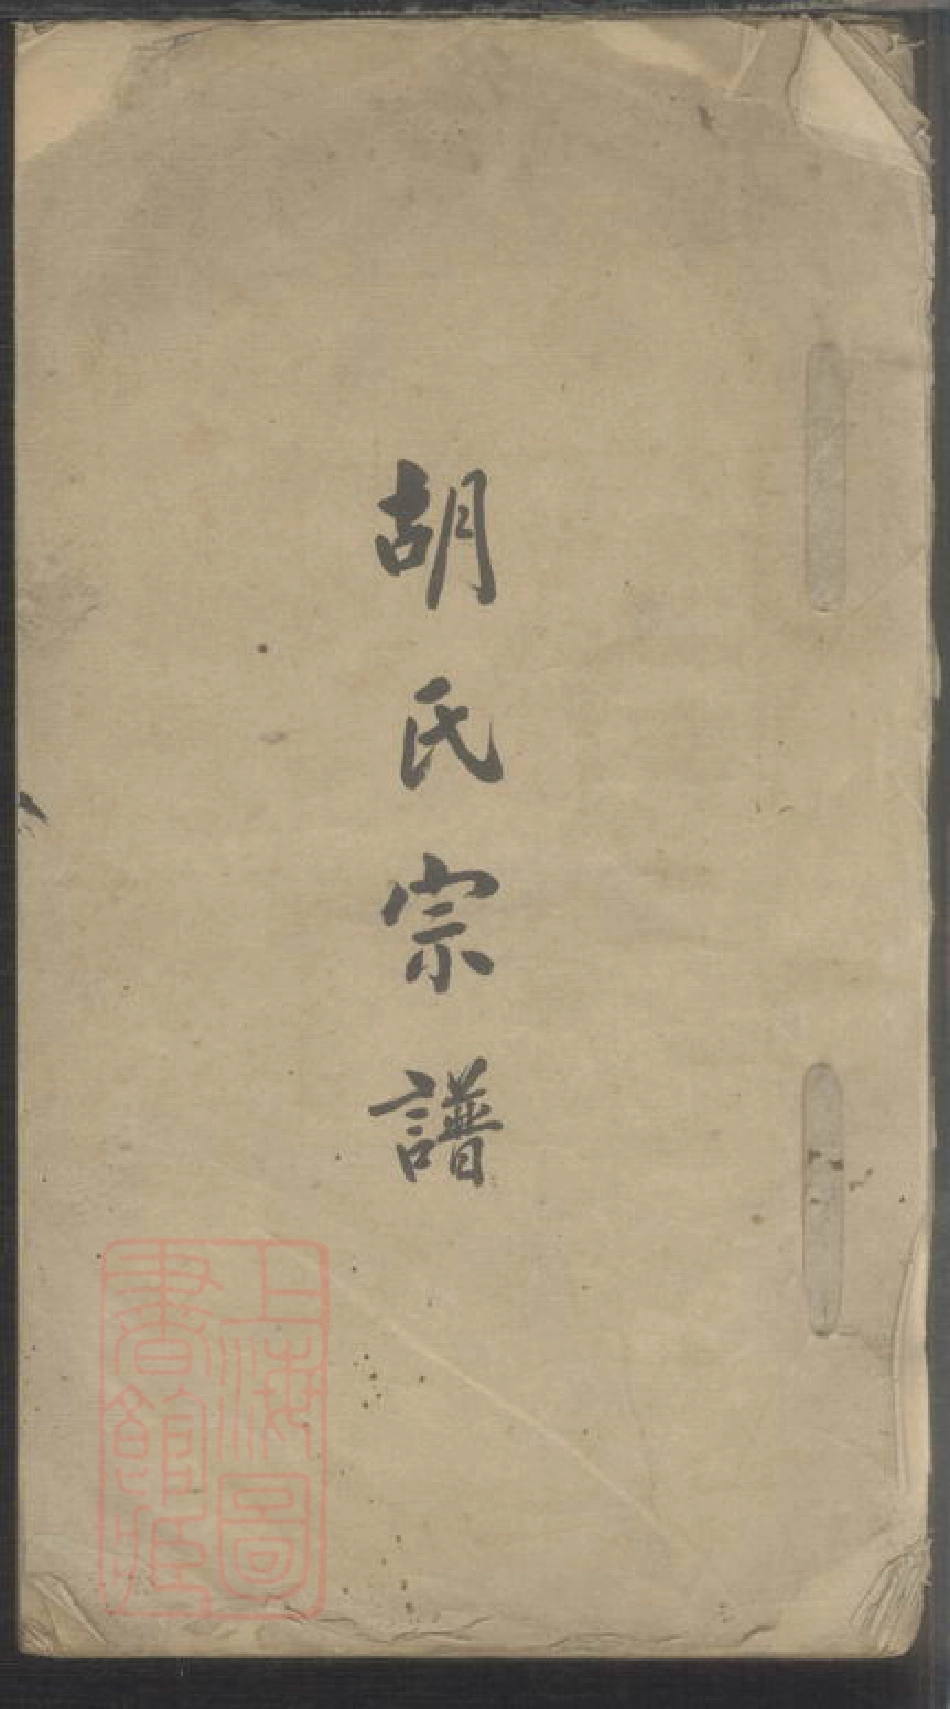 胡氏宗譜
上海圖
書館藏